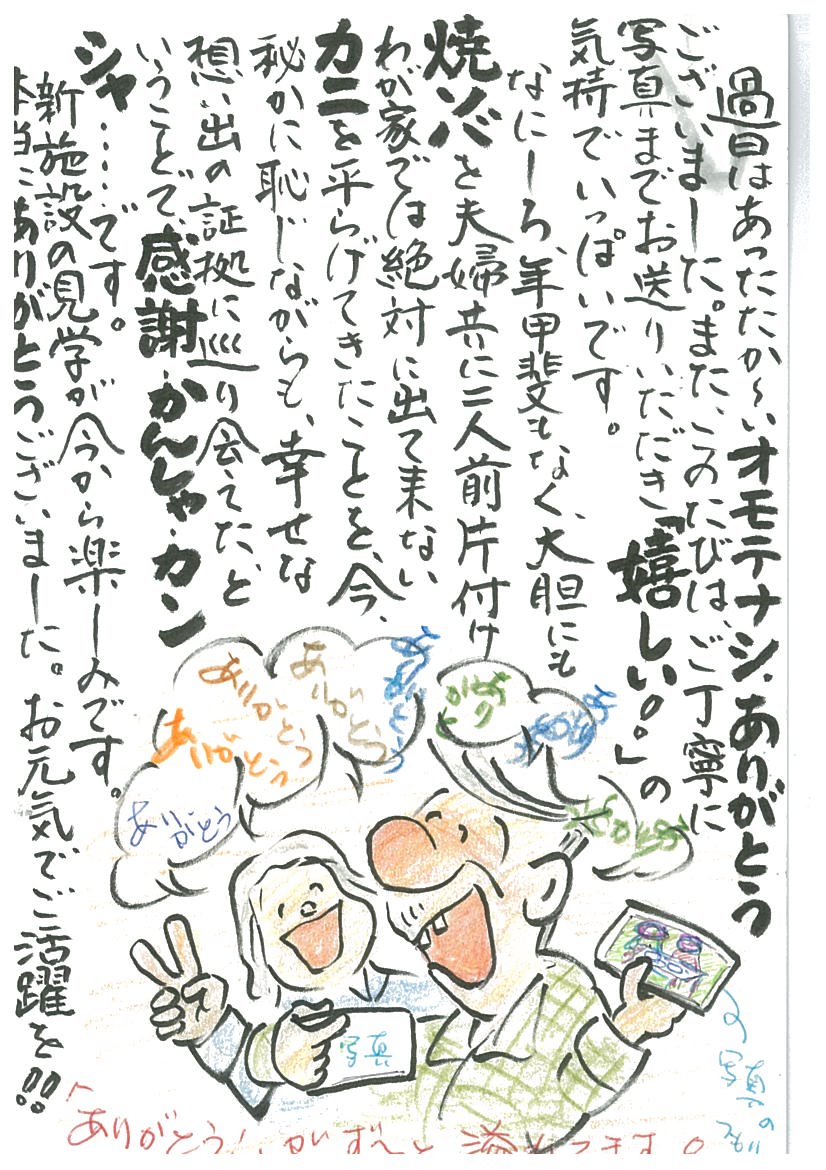 過日はあったたか〜いオモテナシ、ありがとう
ございました。また、このたびは、ご丁寧に
写真までお送りいただき「嬉しい。」の
気持でいっぱいです。
なにしろ、年甲斐もなく、大胆にも
焼ソバを夫婦共に二人前片付け
わが家では絶対に出て来ない
カニを平らげてきたことを、今、
秘かに恥じながらも、幸せな
想い出の証拠に巡り会えた、と
いうことで、感謝・かんしゃ・カン
シャ……です。
新施設の見学が今から楽しみです。
本当にありがとうございました。お元気でご活躍を!!
ありがとう
ありがとう
ありがとう
ありがとう
ありがとう
ありがとう
ありがとう
ありがとう
写真
写真のつもり
「ありがとう」がず〜と溢れてきます。